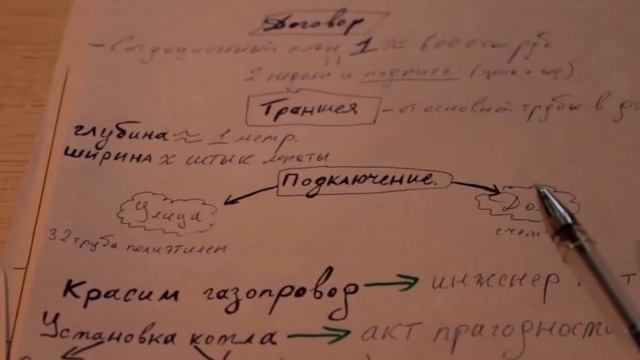 Договор
план 1 ≈ 6000 руб
2 недели и подпись
Траншея - от основной трубы в
глубина ≈ 1 метр.
ширина х штык лопаты.
Подключение.
Улица.
32 труба полиэтилен
Красим газопровод → инженер
Установка котла → акт прагодности